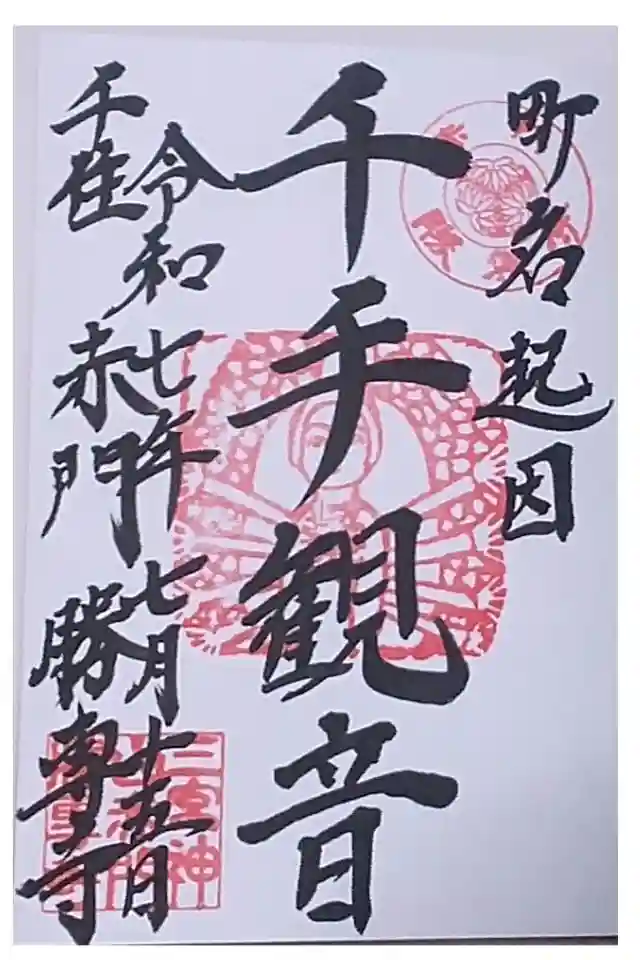 町名起因
千手観音
令和七年七月十五日
千住赤門勝専寺